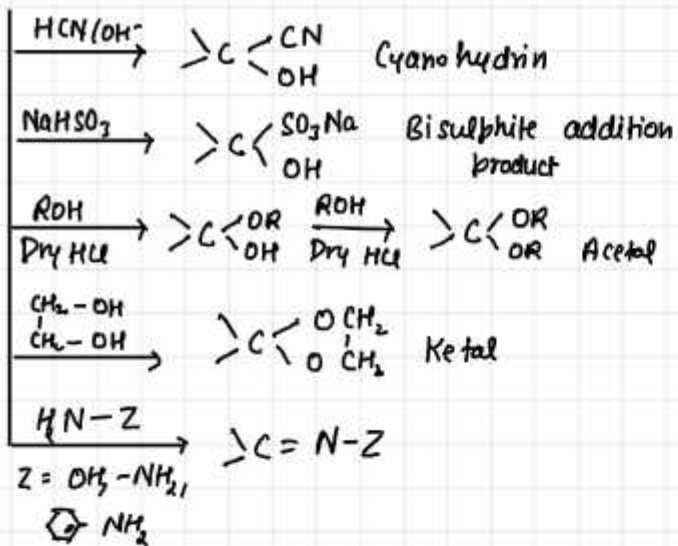 HCN/OH⁻ >C<CN OH Cyanohydrin
NaHSO₃ >C<SO₃Na OH Bisulphite addition product
ROH Dry HCl >C<OR OH ROH Dry HCl >C<OR OR Acetal
CH₂-OH CH₂-OH >C<O CH₂ O CH₂ Ketal
H₂N-Z >C=N-Z
Z = OH, -NH₂,
NH₂